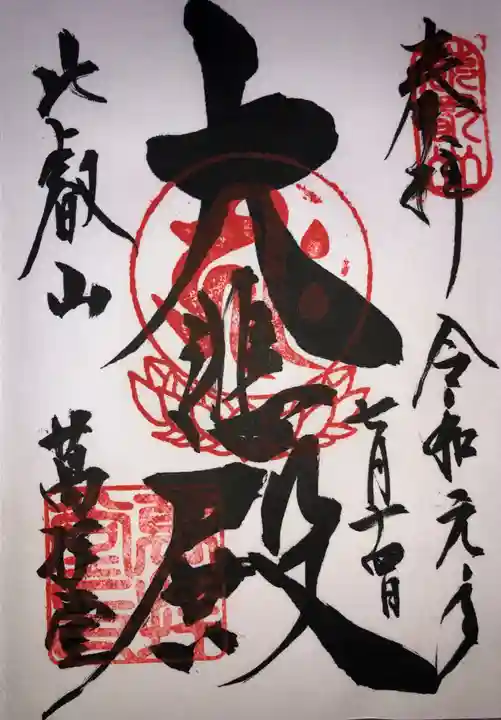 奉拝
令和元年
七月十四日
大悲殿
比叡山
萬拝堂